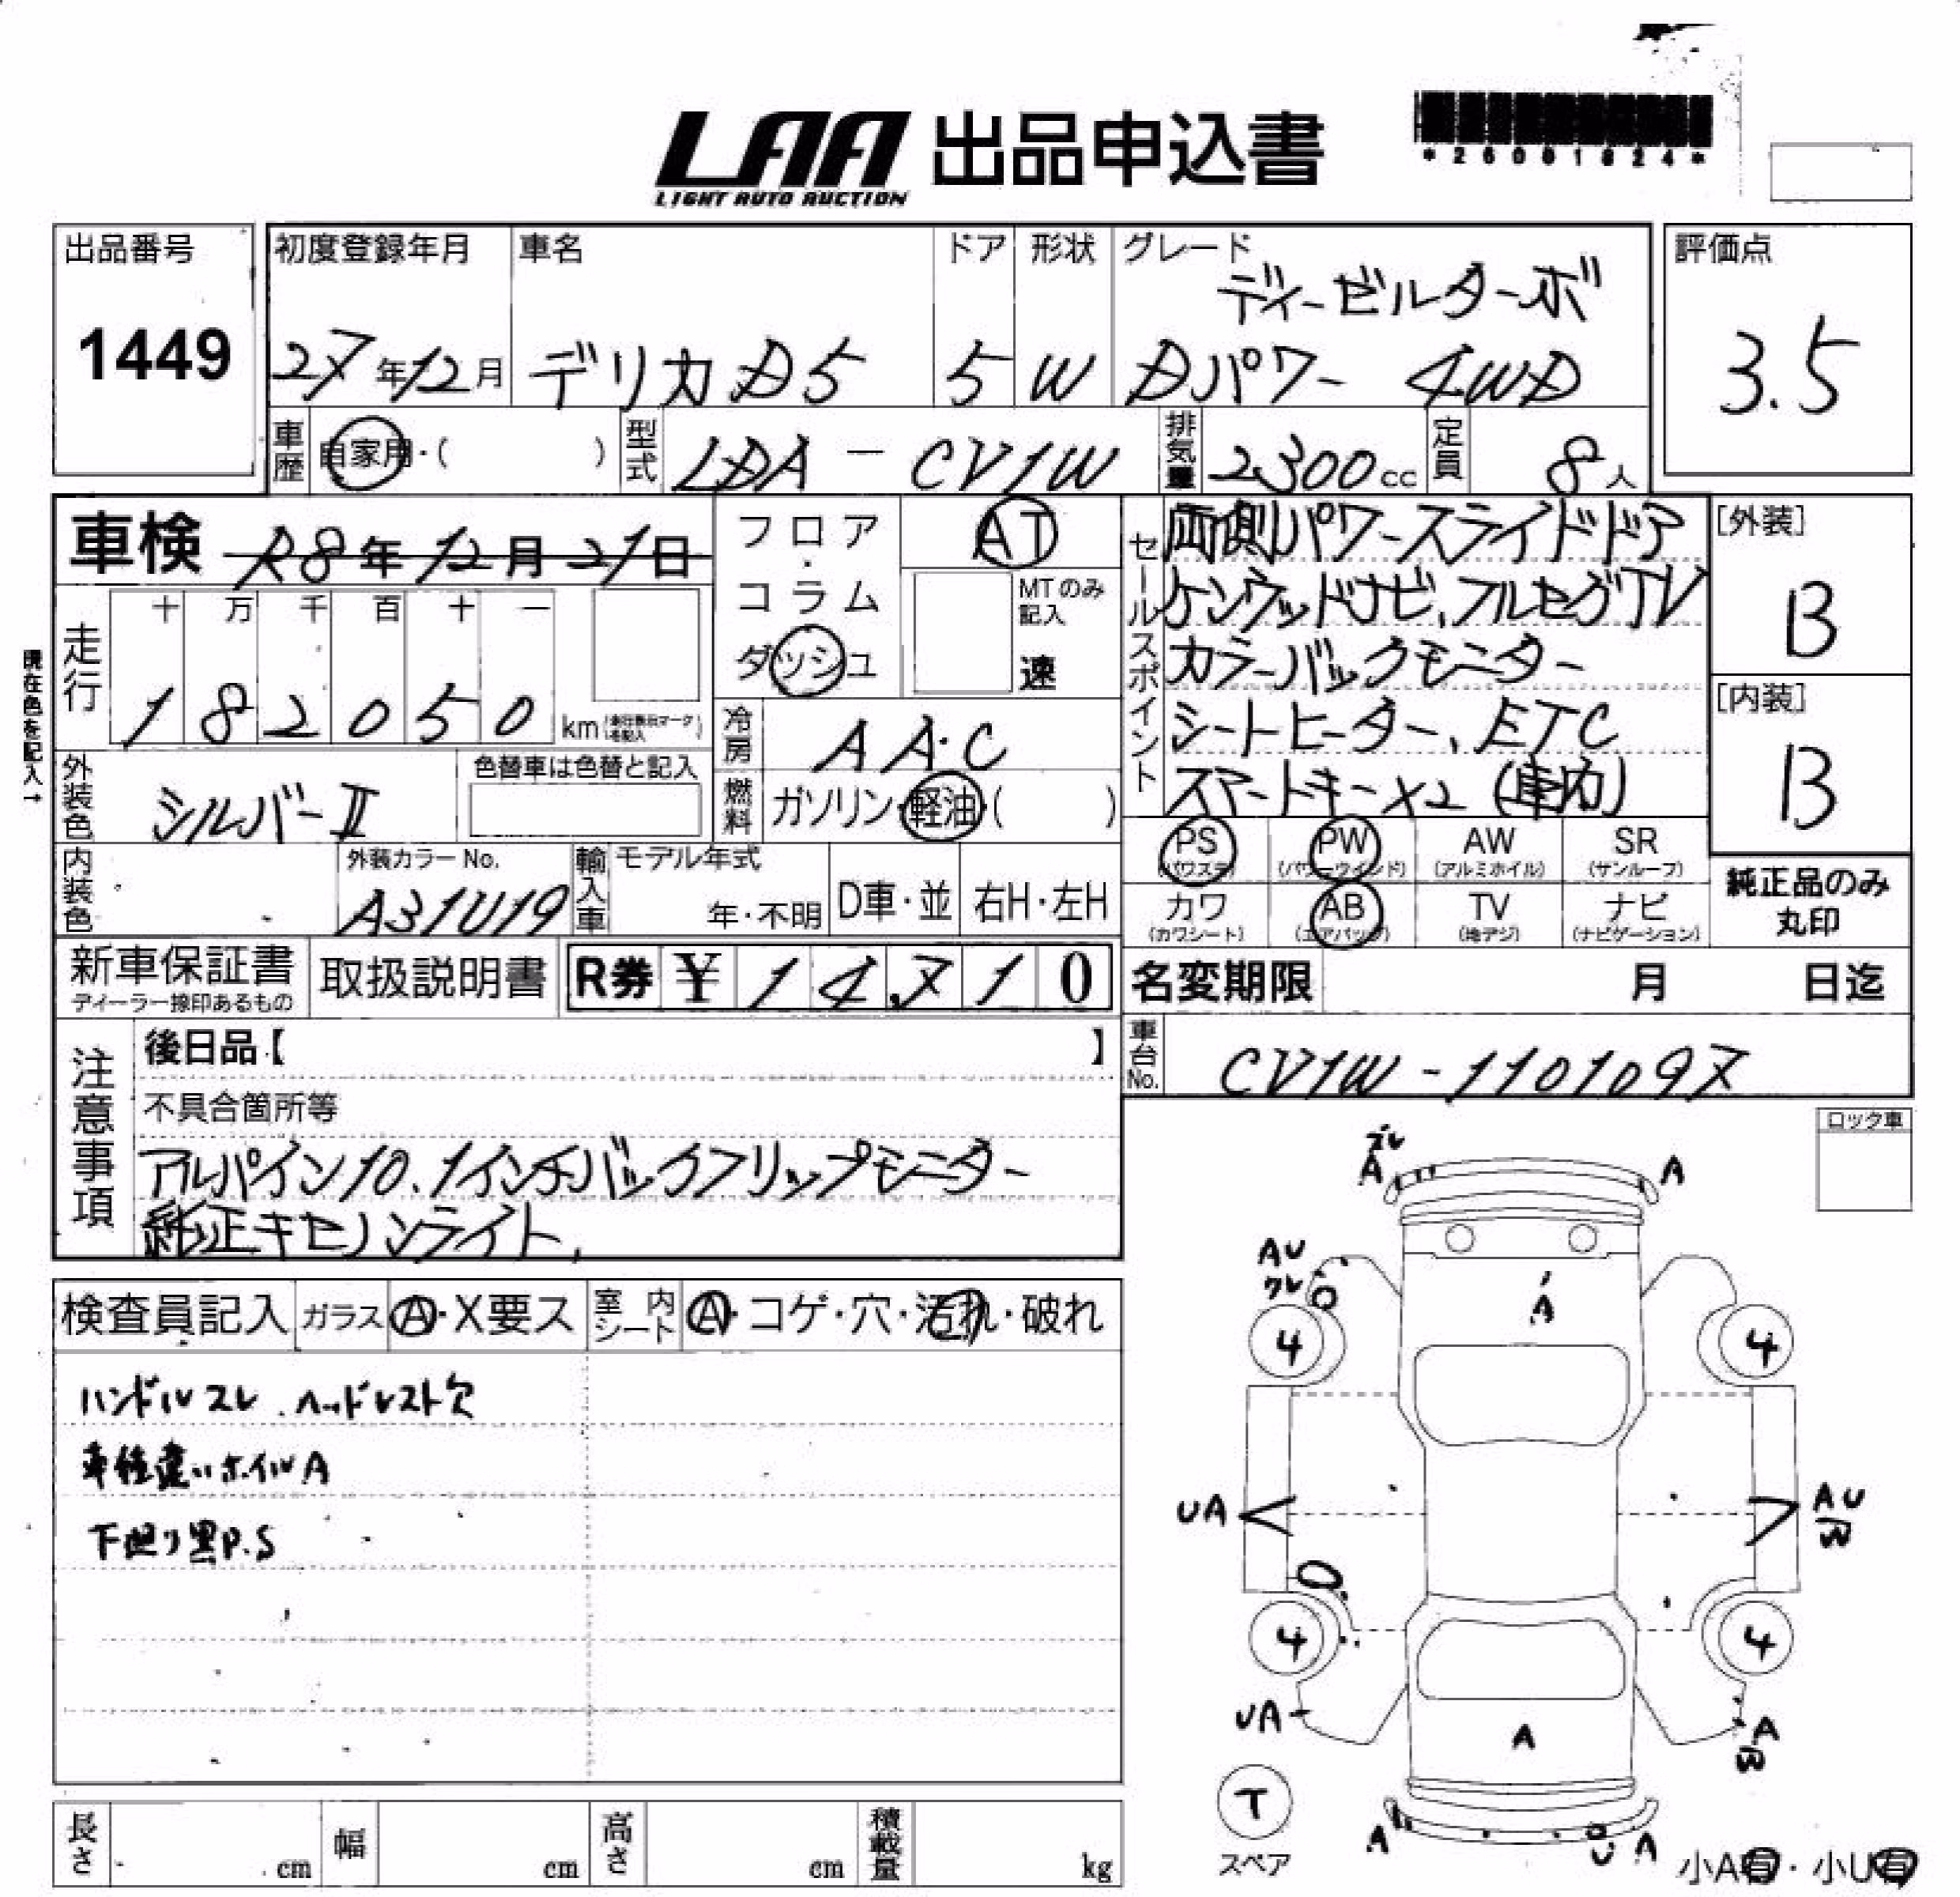 LAA 出品申込書
LIGHT AUTO AUCTION
*26001824*
出品番号
1449
初度登録年月
27年12月
車名
デリカD5
ドア
5
形状
W
グレード
ディーゼルターボ
Dパワー 4WD
評価点
3.5
車歴 自家用・( )
型式 LDA-CV1W
排気量 2300cc
定員 8人
車検 R8年12月21日
フロア・コラム
ダッシュ
AT
MTのみ記入
速
現在色を記入→
走行
十 万 千 百 十 一
1 8 2 0 5 0 km
冷房 AA.C
燃料 ガソリン・軽油・( )
外装色 シルバーII
色替車は色替と記入
内装色
外装カラーNo.
A31U19
輸入車
モデル年式
年・不明
D車・並
右H・左H
セールスポイント
両側パワースライドドア
ケンウッドナビ、フルセグTV
カラーバックモニター
シートヒーター、ETC
スマートキー×2(車内)
[外装]
B
[内装]
B
PS (パワステ)
PW (パワーウインド)
AW (アルミホイル)
SR (サンルーフ)
カワ (カワシート)
AB (エアバッグ)
TV (地デジ)
ナビ (ナビゲーション)
純正品のみ
丸印
新車保証書
ディーラー捺印あるもの
取扱説明書
R券 ¥14,710
名変期限 月 日迄
車台No. CV1W-1101097
注意事項
後日品【 】
不具合箇所等
アルパイン10.1インチバックフリップモニター
純正キセノンライト、
検査員記入
ガラス A・X要ス
室内シート A・コゲ・穴・汚れ・破れ
ハンドルスレ、ヘッドレスト欠
車種違いホイルA
下廻り黒P.S
ロック車
ズレ
A A
AU
クレ
A
4 4
UA
AU
W
4 4
UA
A
A
W
T
スペア
A
U A
小A有・小U有
長さ cm
幅 cm
高さ cm
積載量 kg